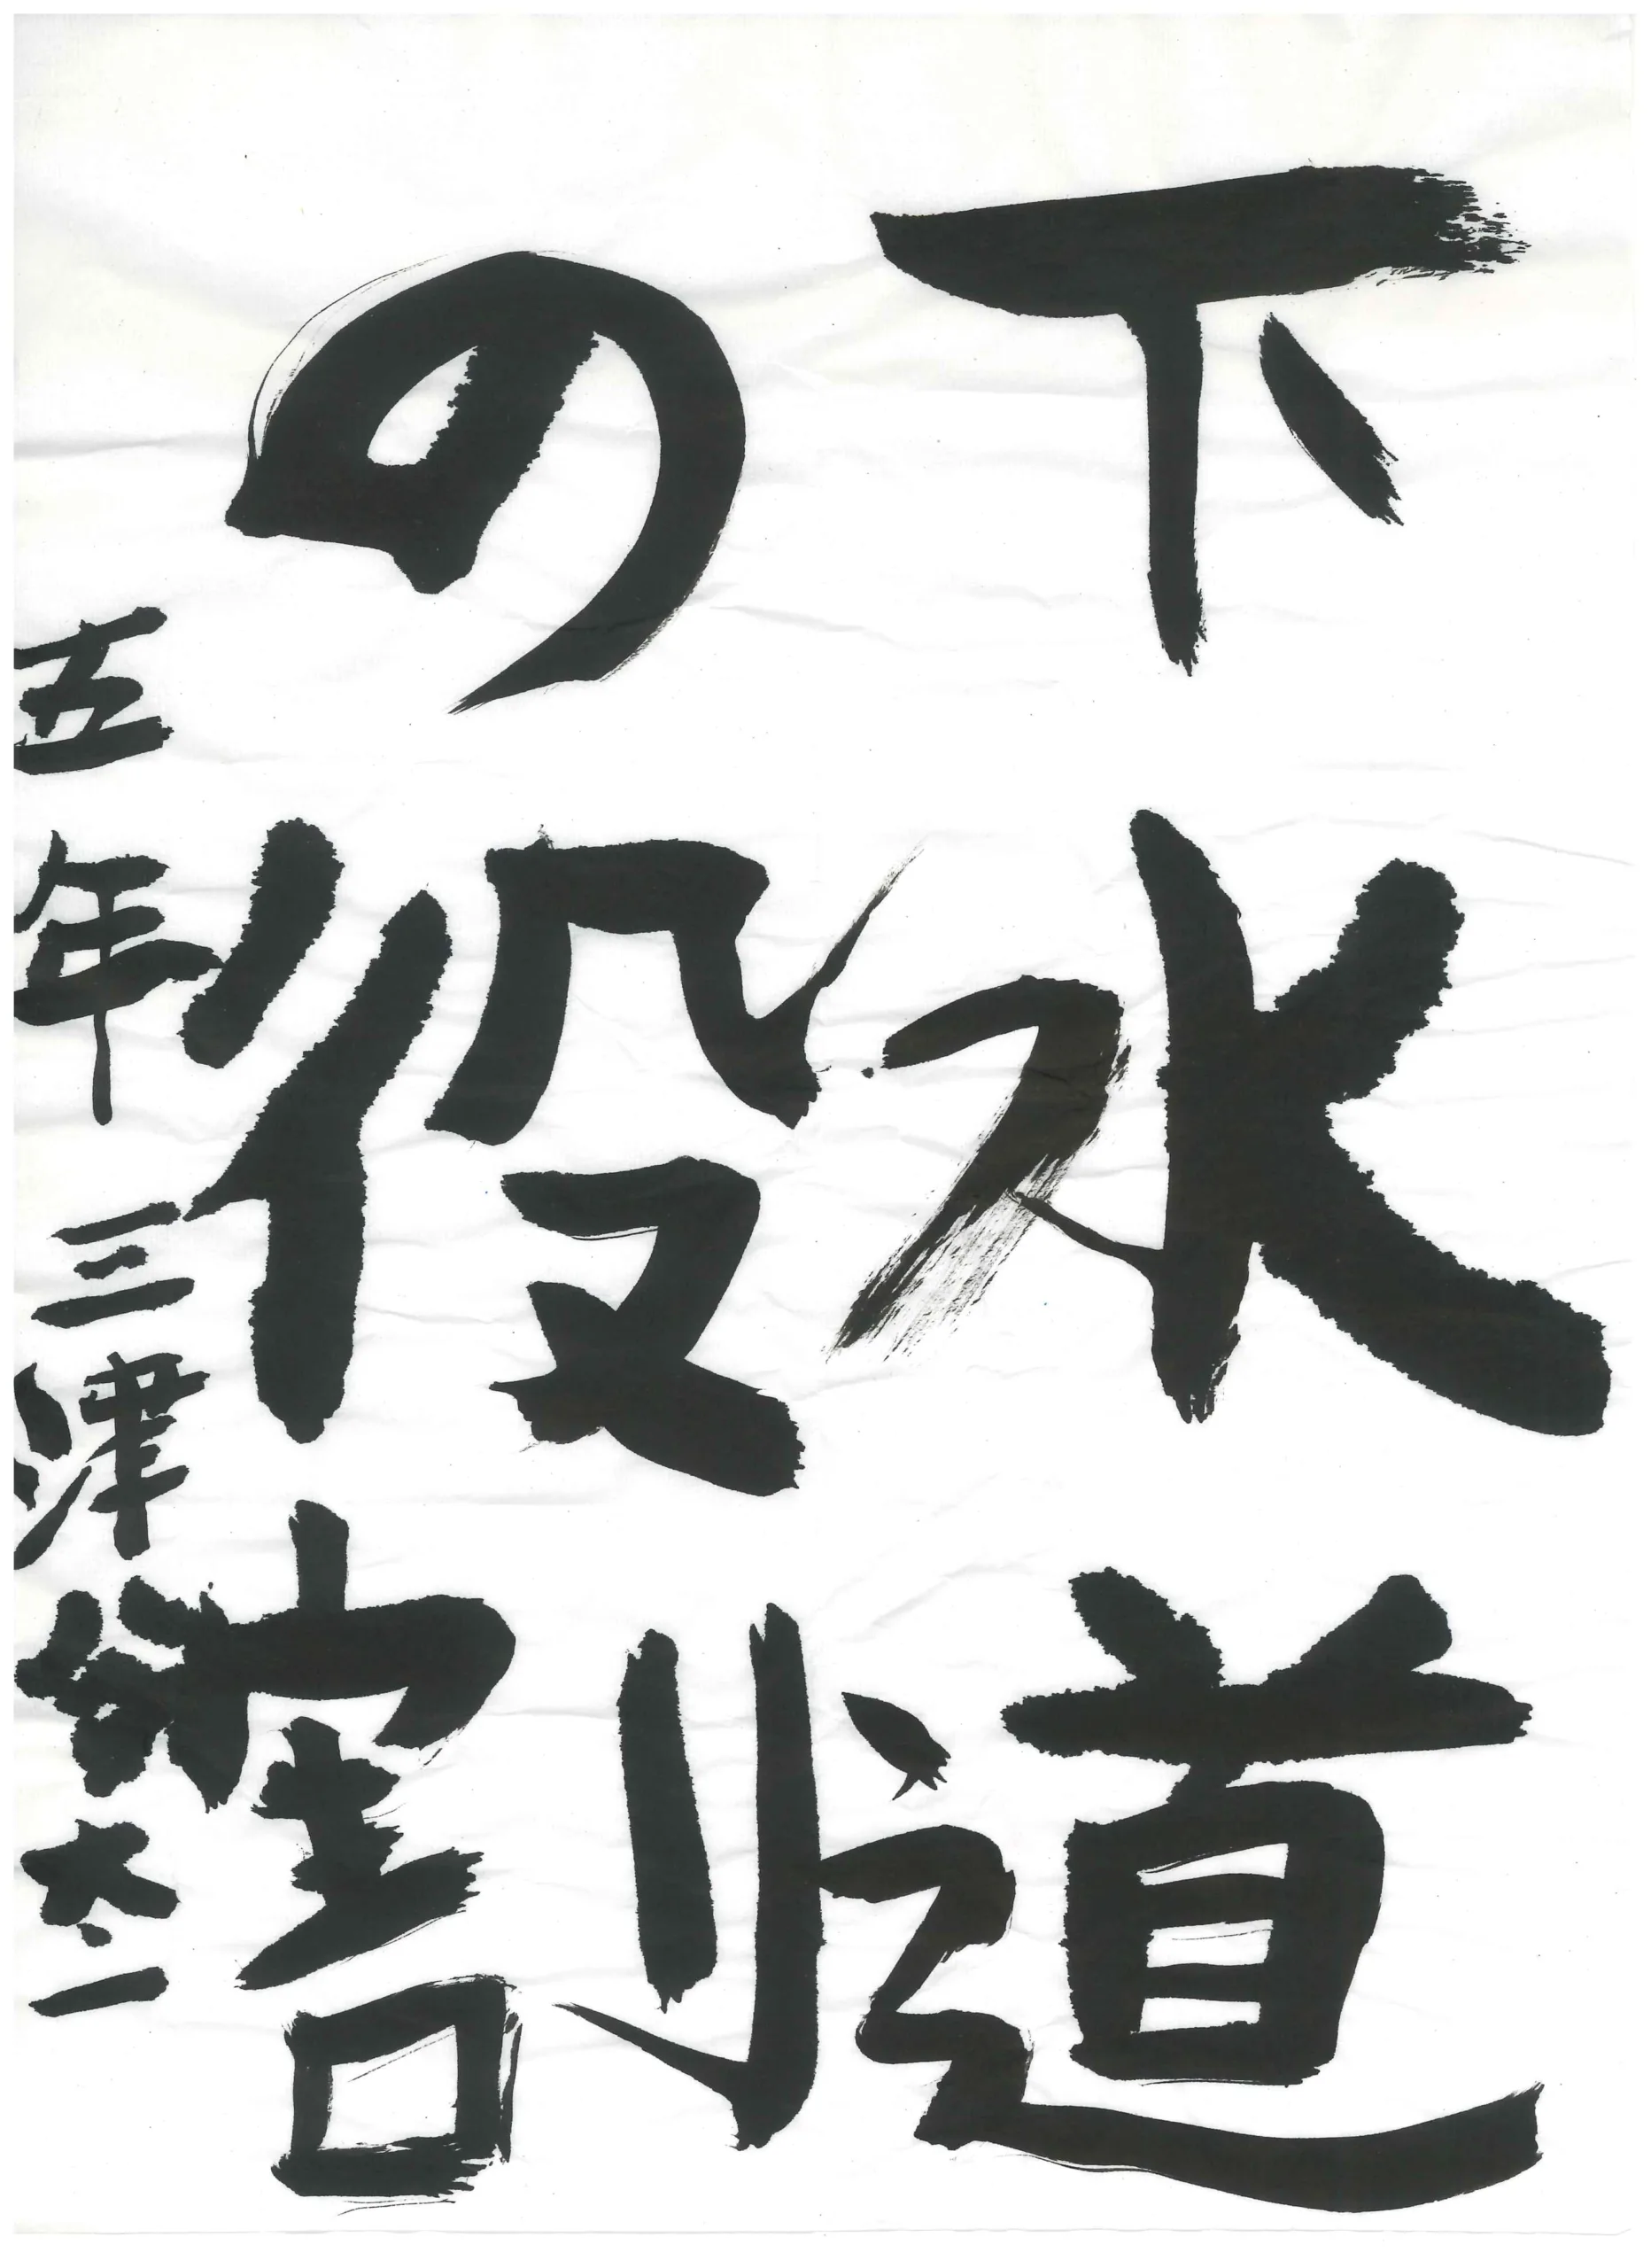 下水道
の役割
五年 三津谷太一